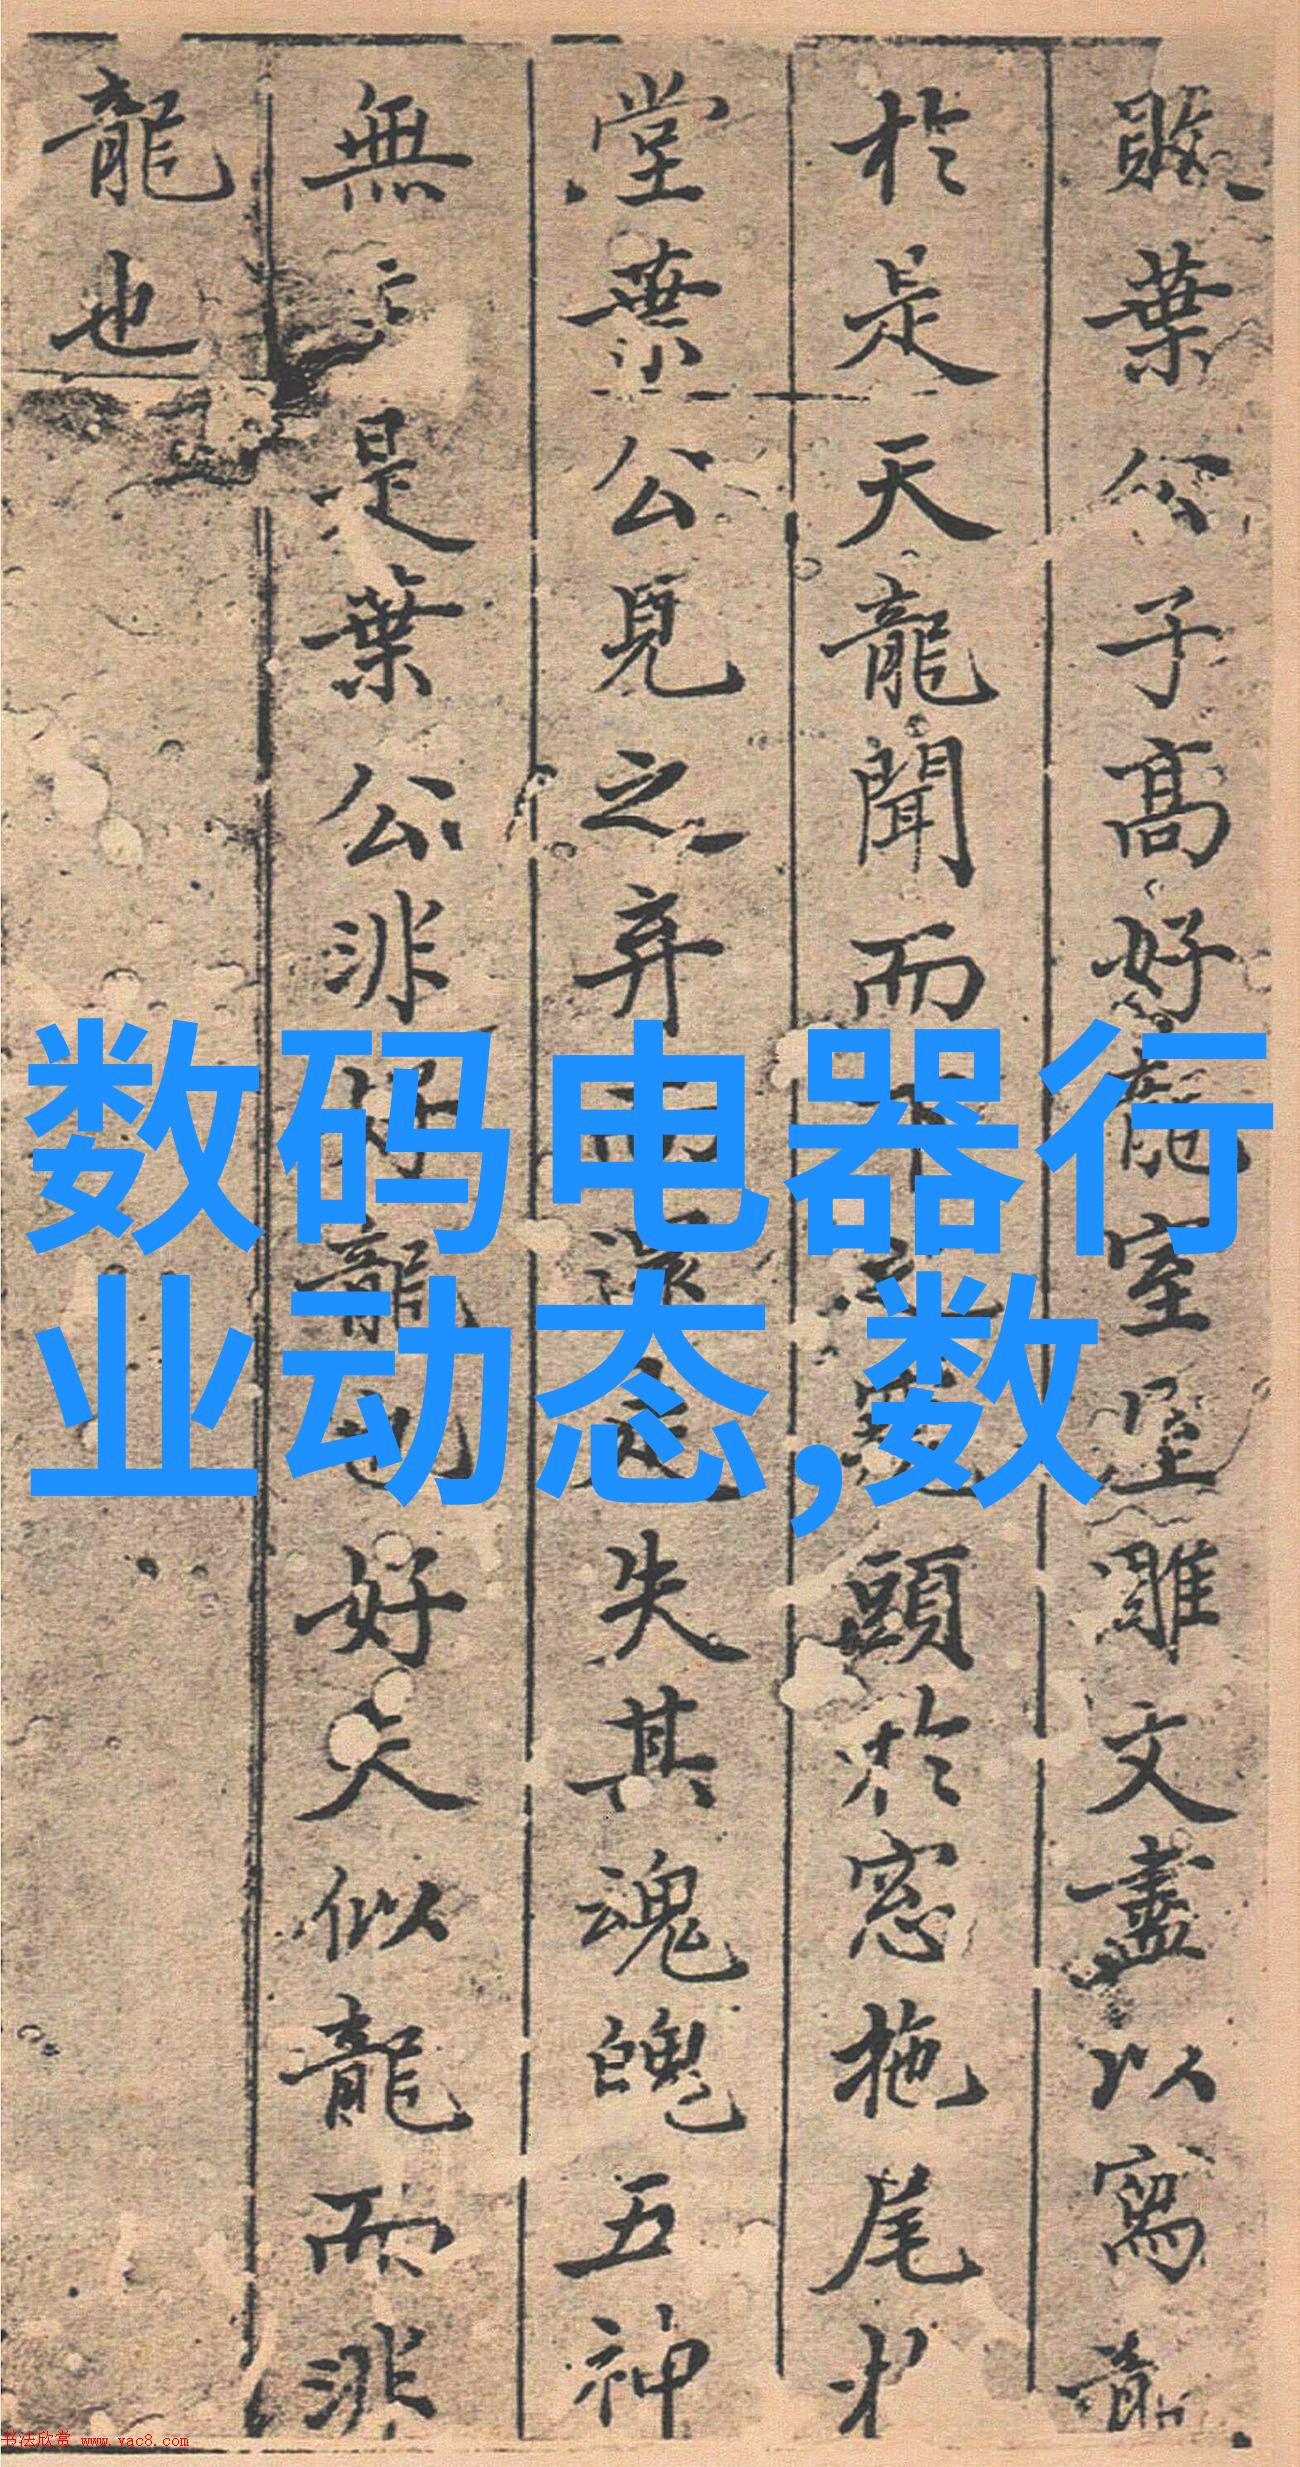 敗葉公子高好龍室屋雕文盡以寫龍
於是天龍聞而下之窺頭於窓拖尾於
堂葉公見之弃而還走失其魂魄五神
無主是葉公非好龍也好夫似龍而非
龍也
数码电器行
业动态,数
书法欣赏 www.yac8.com